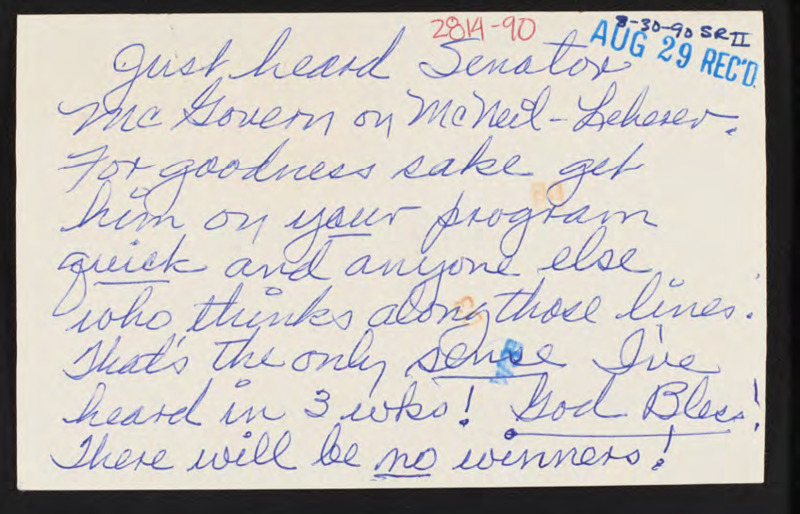 2814-90
8-30-90 SR II
AUG 29 REC'D.
Just heard Senator
Mc Govern on McNeil-Leherer.
For goodness sake get
him on your program
quick and anyone else
who thinks along those lines.
That's the only sense I've
heard in 3 wks! God Bless!
There will be no winners!